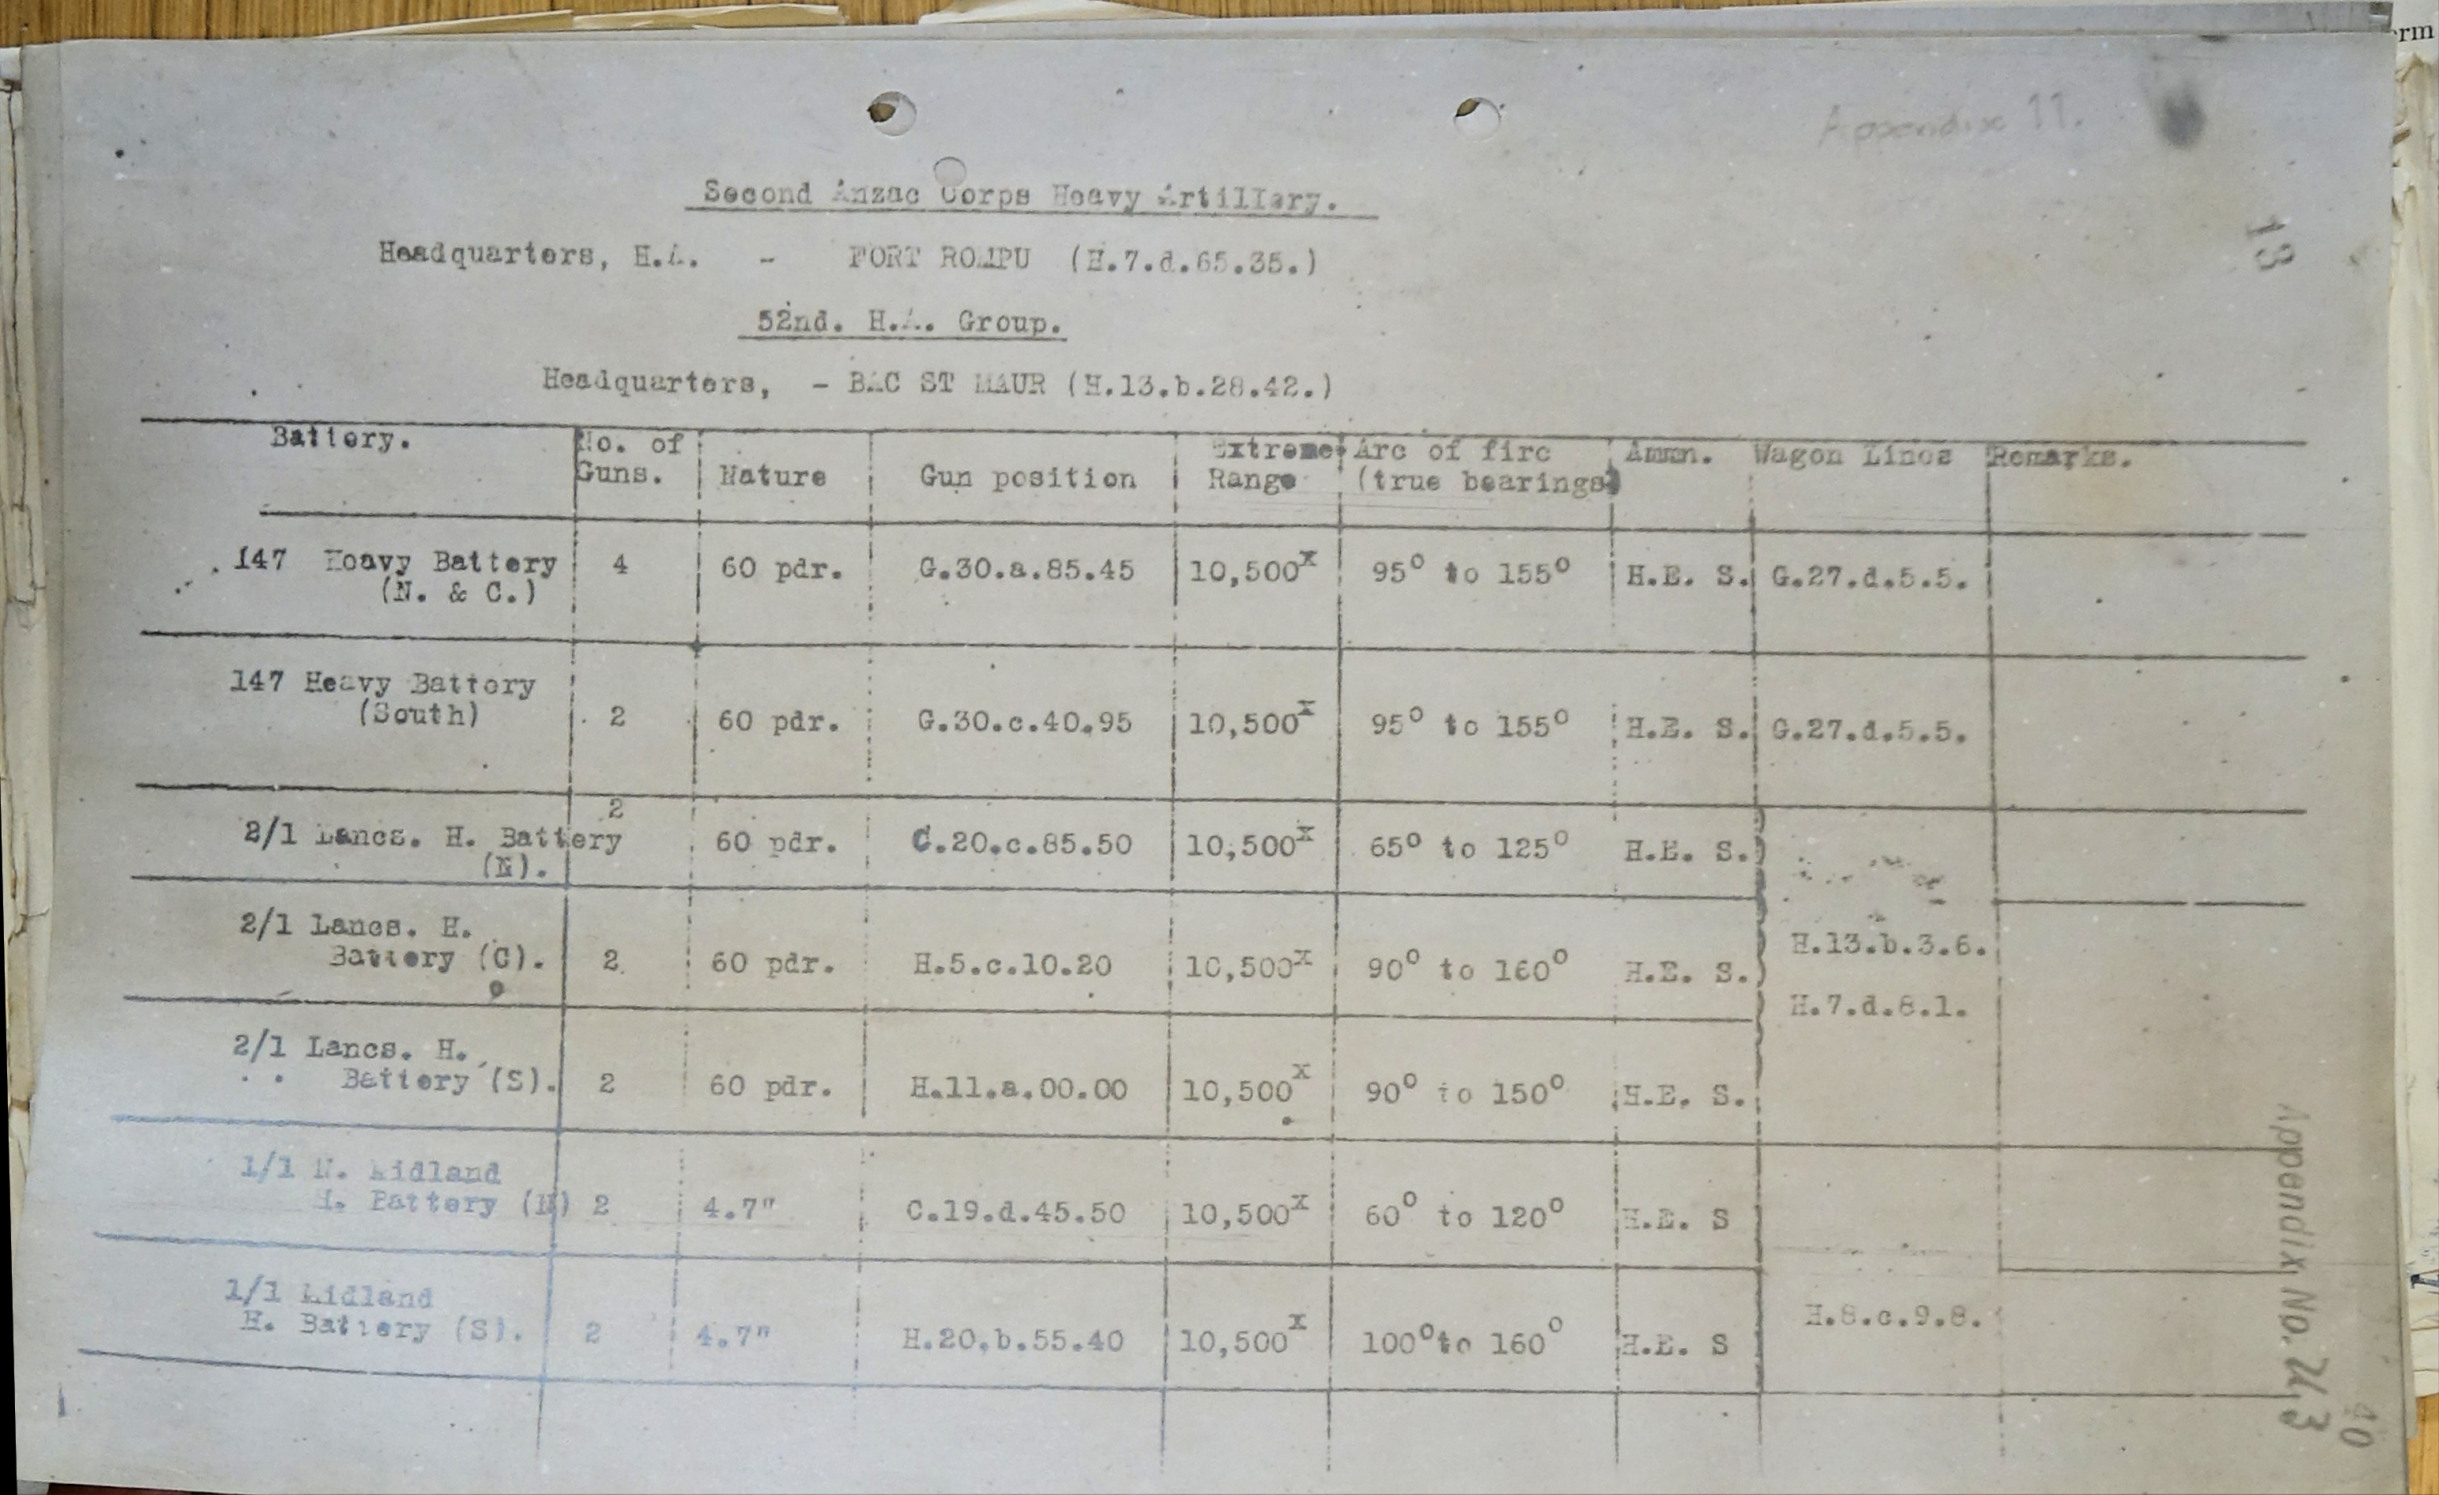 Appendix 11.
13
Second Anzac Corps Heavy Artillery.
Headquarters, H.A. - FORT ROMPU (H.7.d.65.35.)
52nd. H.A. Group.
Headquarters, - BAC ST MAUR (H.13.b.28.42.)
Battery. No. of Guns. Nature Gun position Extreme Range Arc of fire (true bearings) Ammn. Wagon Lines Remarks.
147 Heavy Battery (N. & C.) 4 60 pdr. G.30.a.85.45 10,500x 95° to 155° H.E. S. G.27.d.5.5.
147 Heavy Battery (South) 2 60 pdr. G.30.c.40.95 10,500x 95° to 155° H.E. S. G.27.d.5.5.
2/1 Lancs. H. Battery (N). 2 60 pdr. C.20.c.85.50 10,500x 65° to 125° H.E. S.)
2/1 Lancs. H. Battery (C). 2 60 pdr. H.5.c.10.20 10,500x 90° to 160° H.E. S.) H.13.b.3.6.
H.7.d.8.1.
2/1 Lancs. H. Battery (S). 2 60 pdr. H.11.a.00.00 10,500x 90° to 150° H.E. S.
1/1 N. Midland H. Battery (N) 2 4.7" C.19.d.45.50 10,500x 60° to 120° H.E. S
1/1 Midland H. Battery (S). 2 4.7" H.20.b.55.40 10,500x 100° to 160° H.E. S H.8.c.9.8.
Appendix No.
40